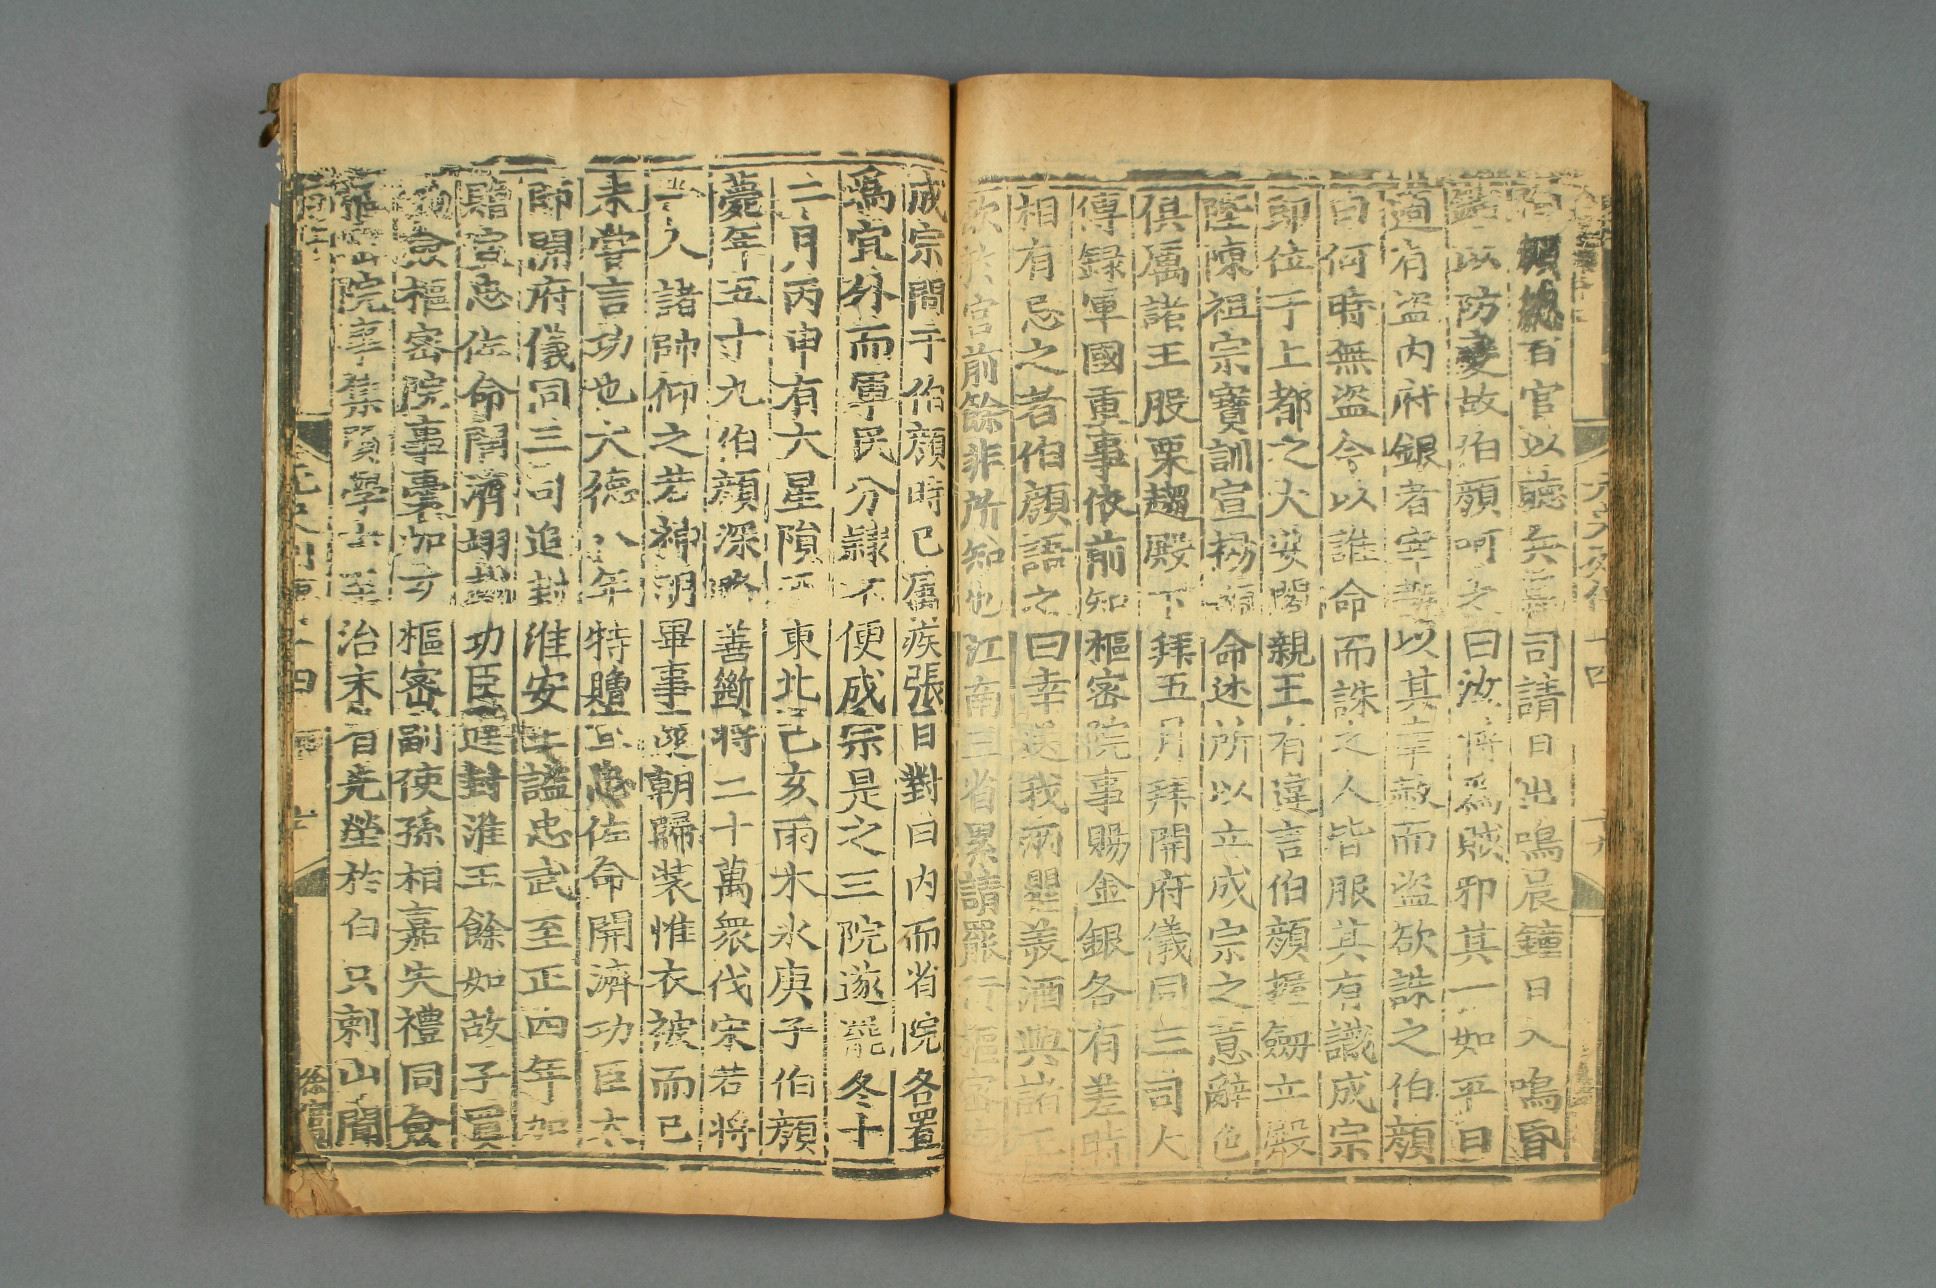 伯顔總百官以聽兵馬司請日出鳴晨鐘日入鳴昏
鐘以防變故伯顔呵之曰汝將爲賊邪其一如平日
適有盗内府銀者宰執以其幸赦而盗欲誅之伯顔
曰何時無盗今以誰命而誅之人皆服其有識成宗
即位于上都之大安閣親王有違言伯顔握劒立殿
陛陳祖宗寶訓宣揚顧命述所以立成宗之意辭色
俱厲諸王股栗趨殿下拜五月拜開府儀同三司太
傅録軍國重事依前知樞密院事賜金銀各有差時
相有忌之者伯顔語之曰幸送我兩罌美酒與諸王
飲於宮前餘非所知也江南三省累請罷行樞密院
成宗問于伯顔時已屬疾張目對曰内而省院各置
爲宜外而軍民分隷不便成宗是之三院遂罷冬十
二月丙申有大星隕于東北己亥雨木氷庚子伯顔
薨年五十九伯顔深略善斷將二十萬衆伐宋若將
一人諸帥仰之若神明畢事還朝歸装惟衣被而已
未嘗言功也大德八年特贈宣忠佐命開濟功臣太
師開府儀同三司追封淮安王謚忠武至正四年加
贈宣忠佐命開濟翊戴功臣進封淮王餘如故子買
的僉樞密院事囊加歹樞密副使孫相嘉失禮同僉
樞密院事集賢學士至治末省先塋於白只剌山聞
元史列傳十四